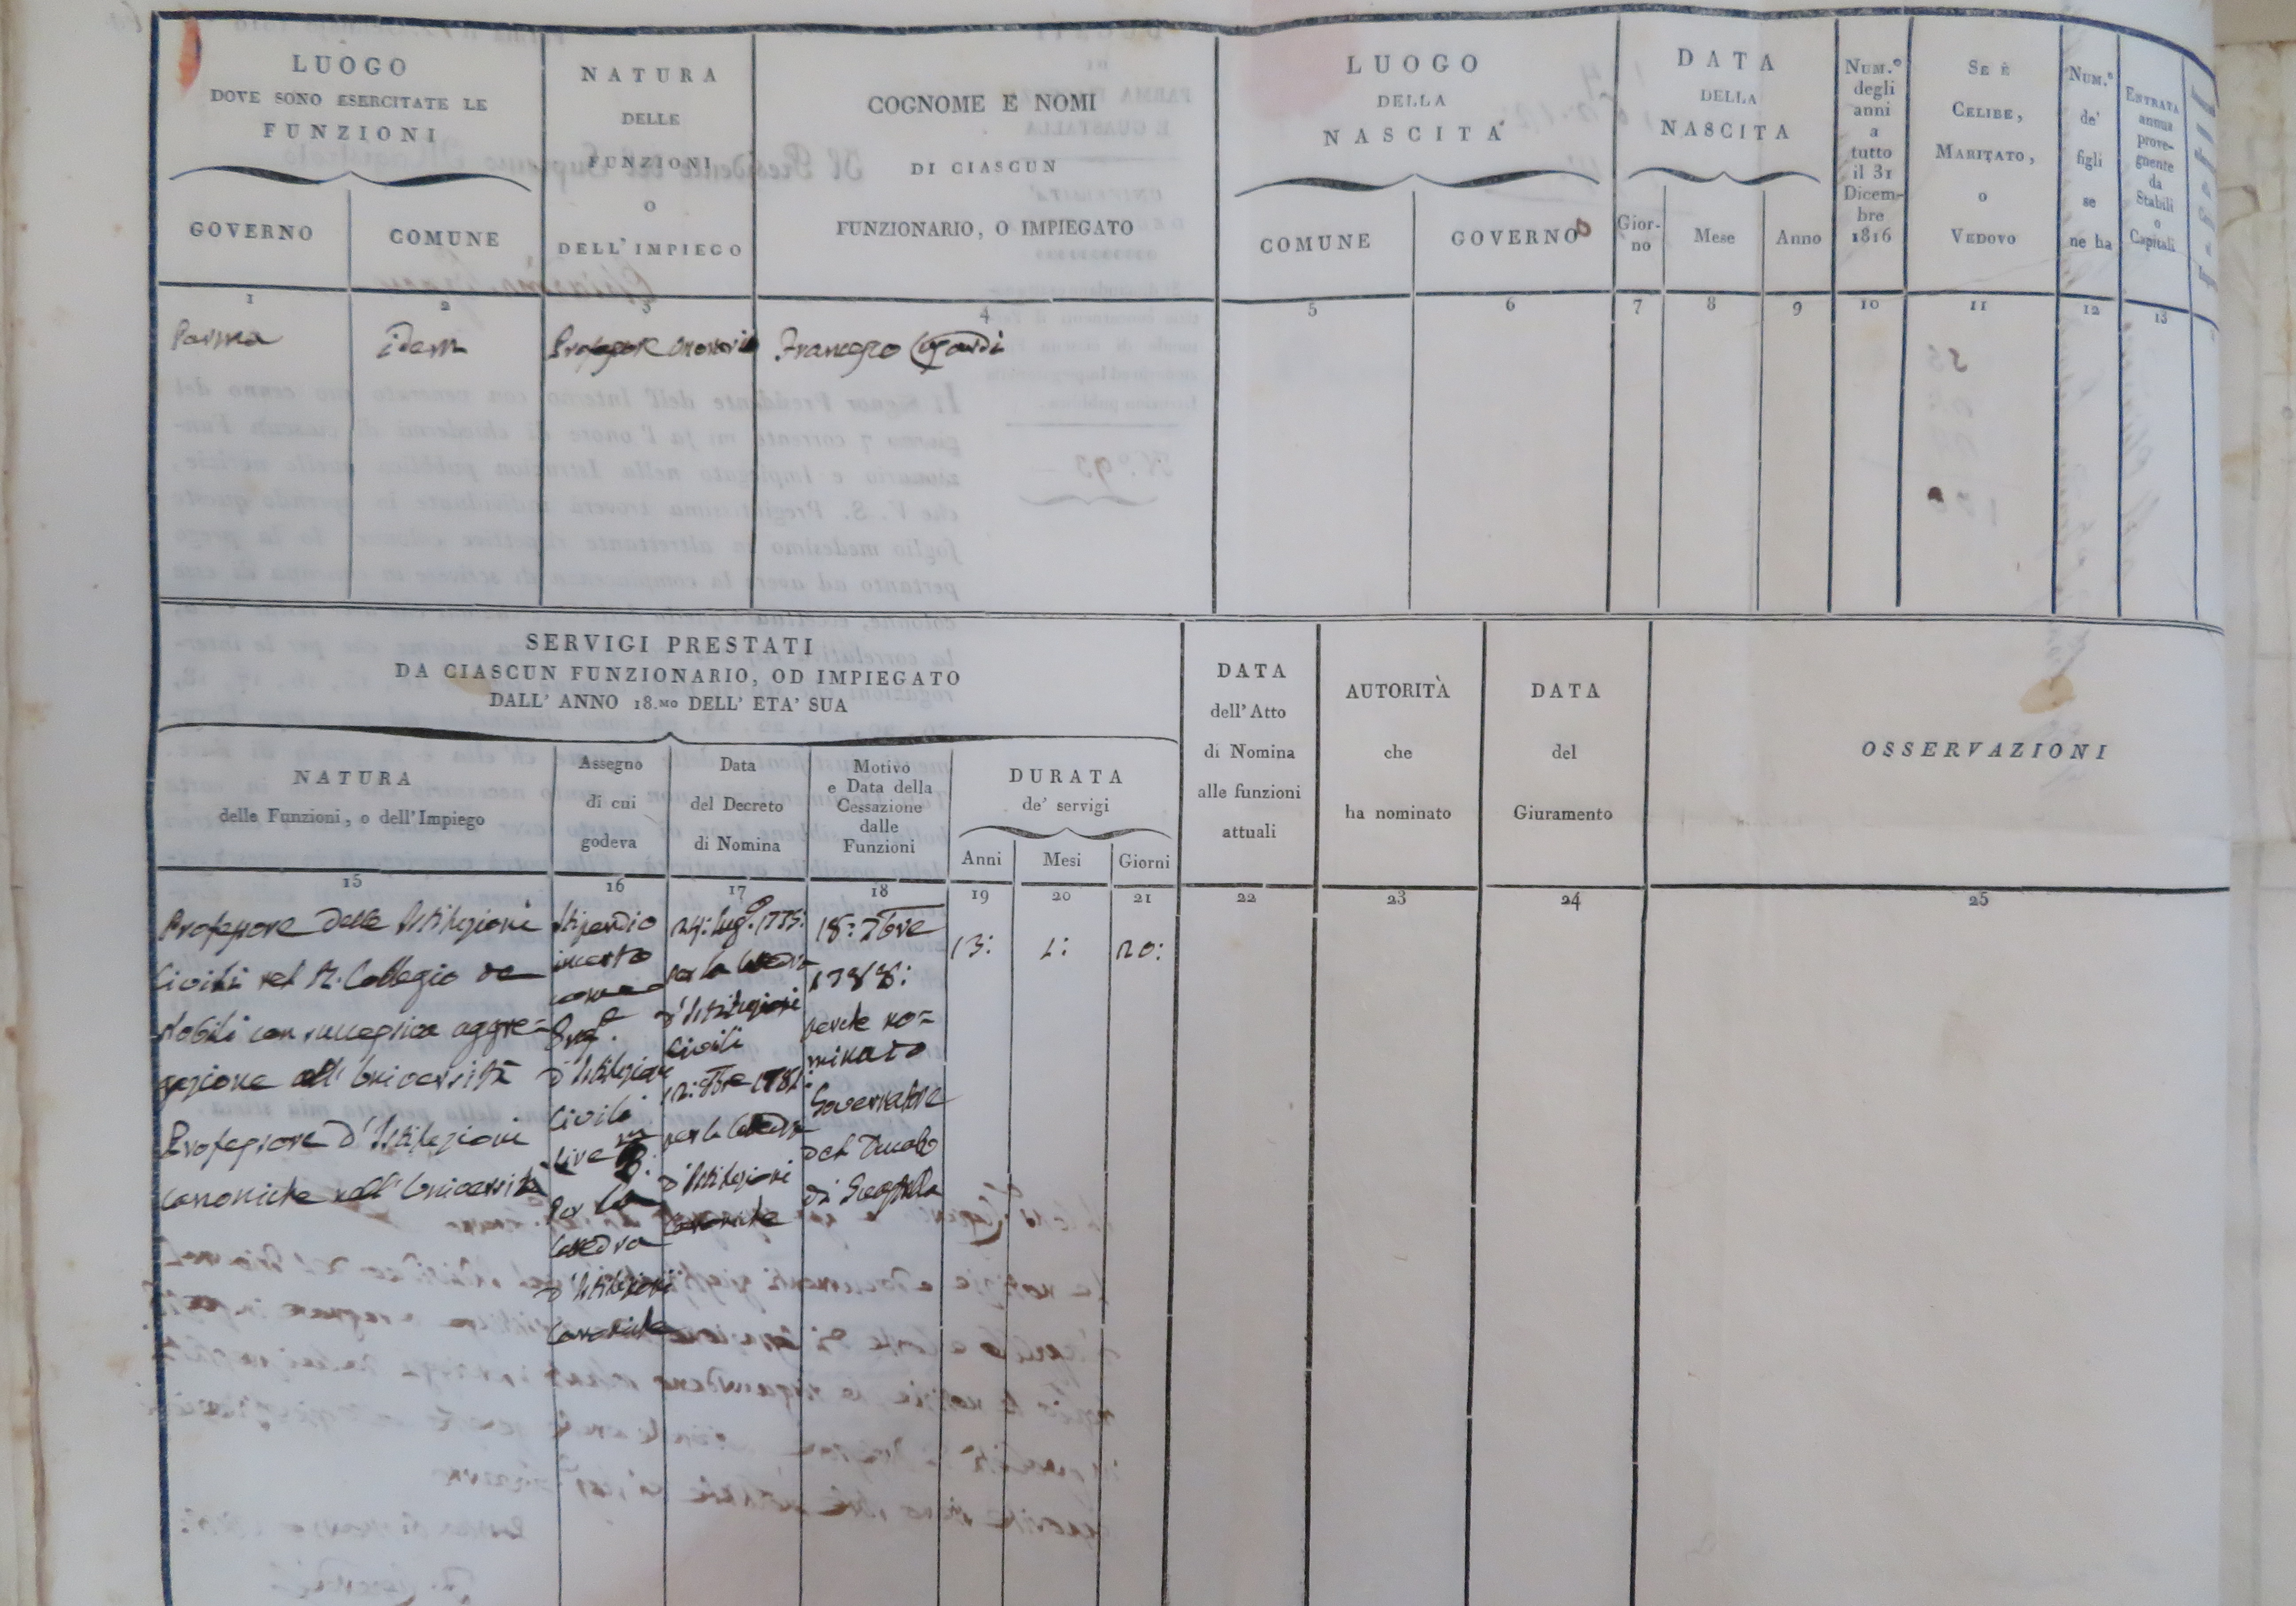 LUOGO
DOVE SONO ESERCITATE LE
FUNZIONI
GOVERNO
COMUNE
NATURA
DELLE
FUNZIONI
O
DELL' IMPIEGO
COGNOME E NOMI
DI CIASCUN
FUNZIONARIO, O IMPIEGATO
LUOGO
DELLA
NASCITA
COMUNE
GOVERNO
DATA
DELLA
NASCITA
Gior-
no
Mese
Anno
NUM.º
degli
anni
a
tutto
il 31
Dicem-
bre
1816
SE È
CELIBE,
MARITATO,
O
VEDOVO
NUM.º
de'
figli
se
ne ha
ENTRATA
annua
prove-
gnente
da
Stabili
o
Capitali
1 2 3 4 5 6 7 8 9 10 11 12 13
Parma
idem
Professore onorario
Francesco
SERVIGI PRESTATI
DA CIASCUN FUNZIONARIO, OD IMPIEGATO
DALL' ANNO 18.MO DELL' ETA' SUA
NATURA
delle Funzioni, o dell'Impiego
Assegno
di cui
godeva
Data
del Decreto
di Nomina
Motivo
e Data della
Cessazione
dalle
Funzioni
DURATA
de' servigi
Anni
Mesi
Giorni
DATA
dell' Atto
di Nomina
alle funzioni
attuali
AUTORITÀ
che
ha nominato
DATA
del
Giuramento
OSSERVAZIONI
15 16 17 18 19 20 21 22 23 24 25
Professore delle Istituzioni
Civili nel R. Collegio de
Nobili con successiva aggre=
gazione all' Università
Professore d'Istituzioni
canoniche nell' Università
Stipendio
incerto
come
Prof.e
d'Istituzioni
Civili
Lire
Per la
Catedra
d'Istituzioni
Canoniche
24: Lug.o 1775:
per la Catedra
d'Istituzioni
Civili
12: 1781:
per la Catedra
d'Istituzioni
Canoniche
18: 7bre
1788:
perche no=
minato
Governatore
del Ducato
di Guastalla
13:
1:
20: